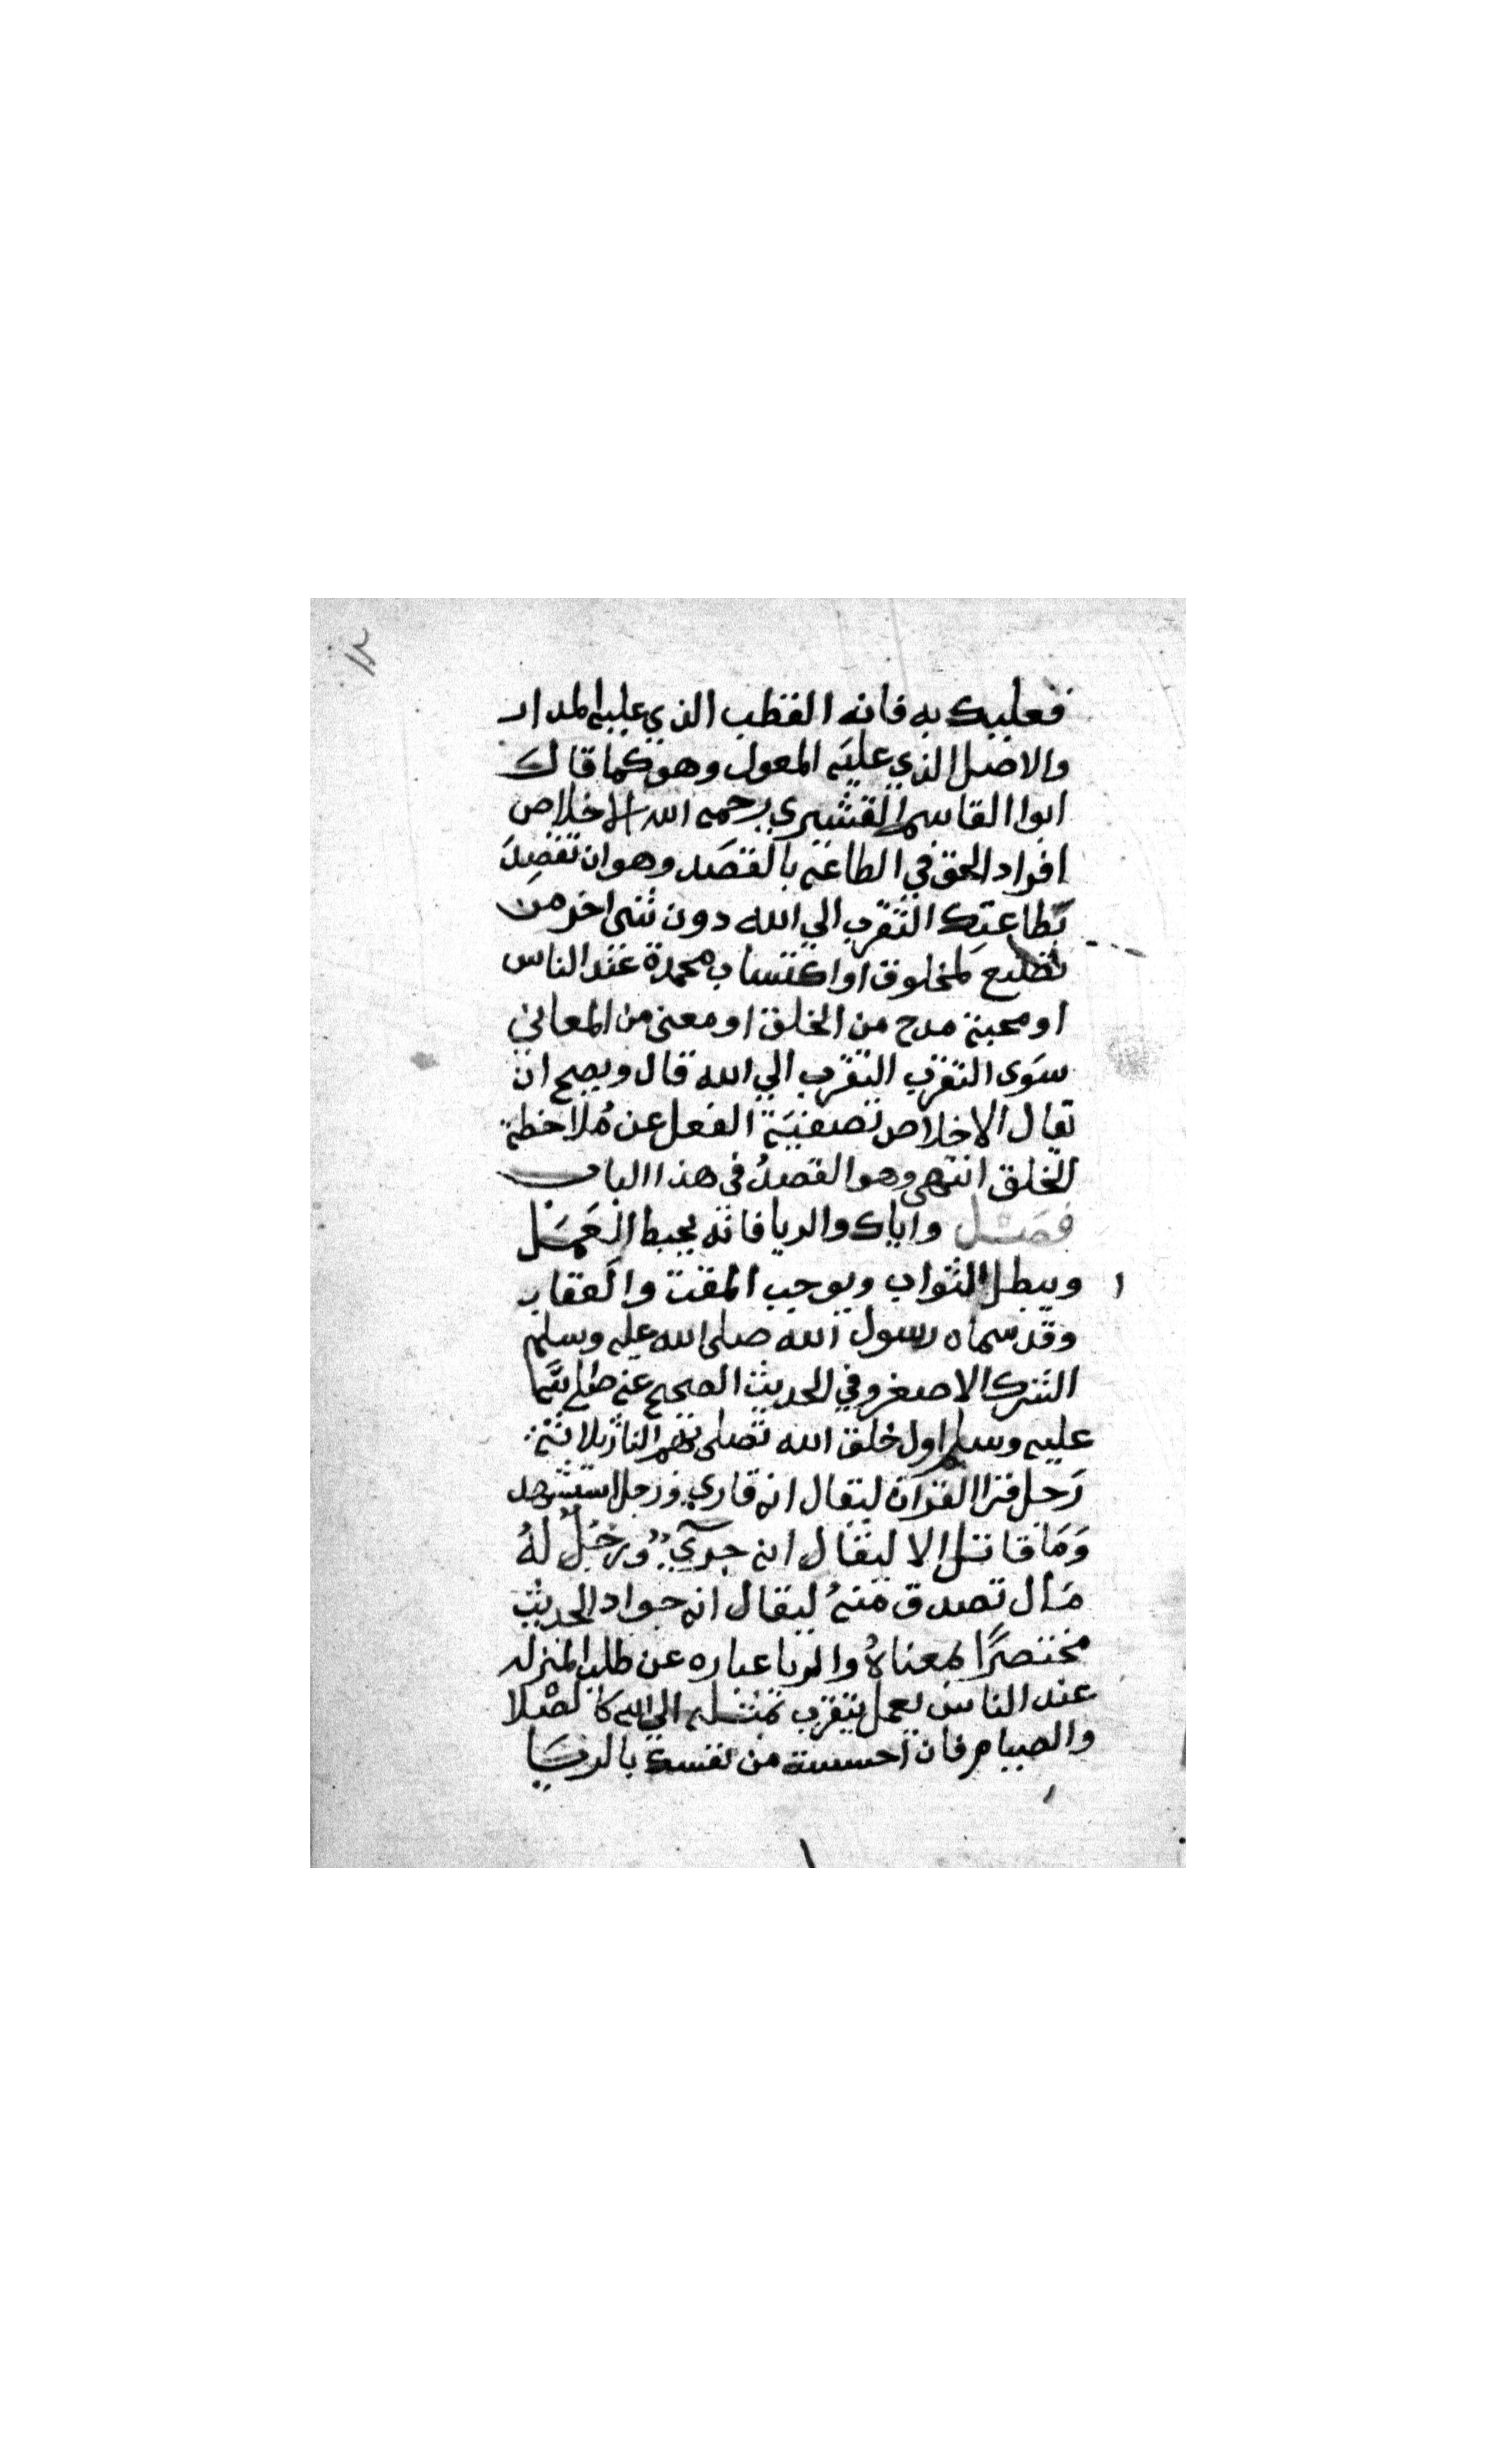 ١٢
فعليك به فانه القطب الذي عليه المدار
والاصل الذي عليه المعول وهو كما قال
ابوا القاسم القشيري رحمه الله الاخلاص
افراد الحق في الطاعة بالقصد وهو ان تقصد
بطاعتك التقرب الي الله دون شى اخر من
لمخلوق او اكتساب محمدة عند الناس
او محبة مدح من الخلق او معنى من المعاني
سوى التقرب التقرب الي الله قال ويصح ان
تقال الاخلاص تصفية الفعل عن ملاحظة
الخلق انتهى وهو القصد في هذا الباب
فصل واياك والريا فانه يحبط العمل
ويبطل الثواب ويوجب المقت والعقاب
وقد سماه رسول الله صلى الله عليه وسلم
الشرك الاصغر وفي الحديث الصحيح عنه صلى الله
عليه وسلم اول خلق الله تصلى بهم النار ثلاثة
رجل قرا القرآن ليقال انه قاري ورجل استشهد
وما قاتل الا ليقال انه جريء ورجل له
مال تصدق منه ليقال انه جواد الحديث
مختصرًا لمعناه والريا عباره عن طلب المنزله
عند الناس بعمل يتقرب بمثله الي الله كالصلا
والصيام فان احسست من نفسك بالريا